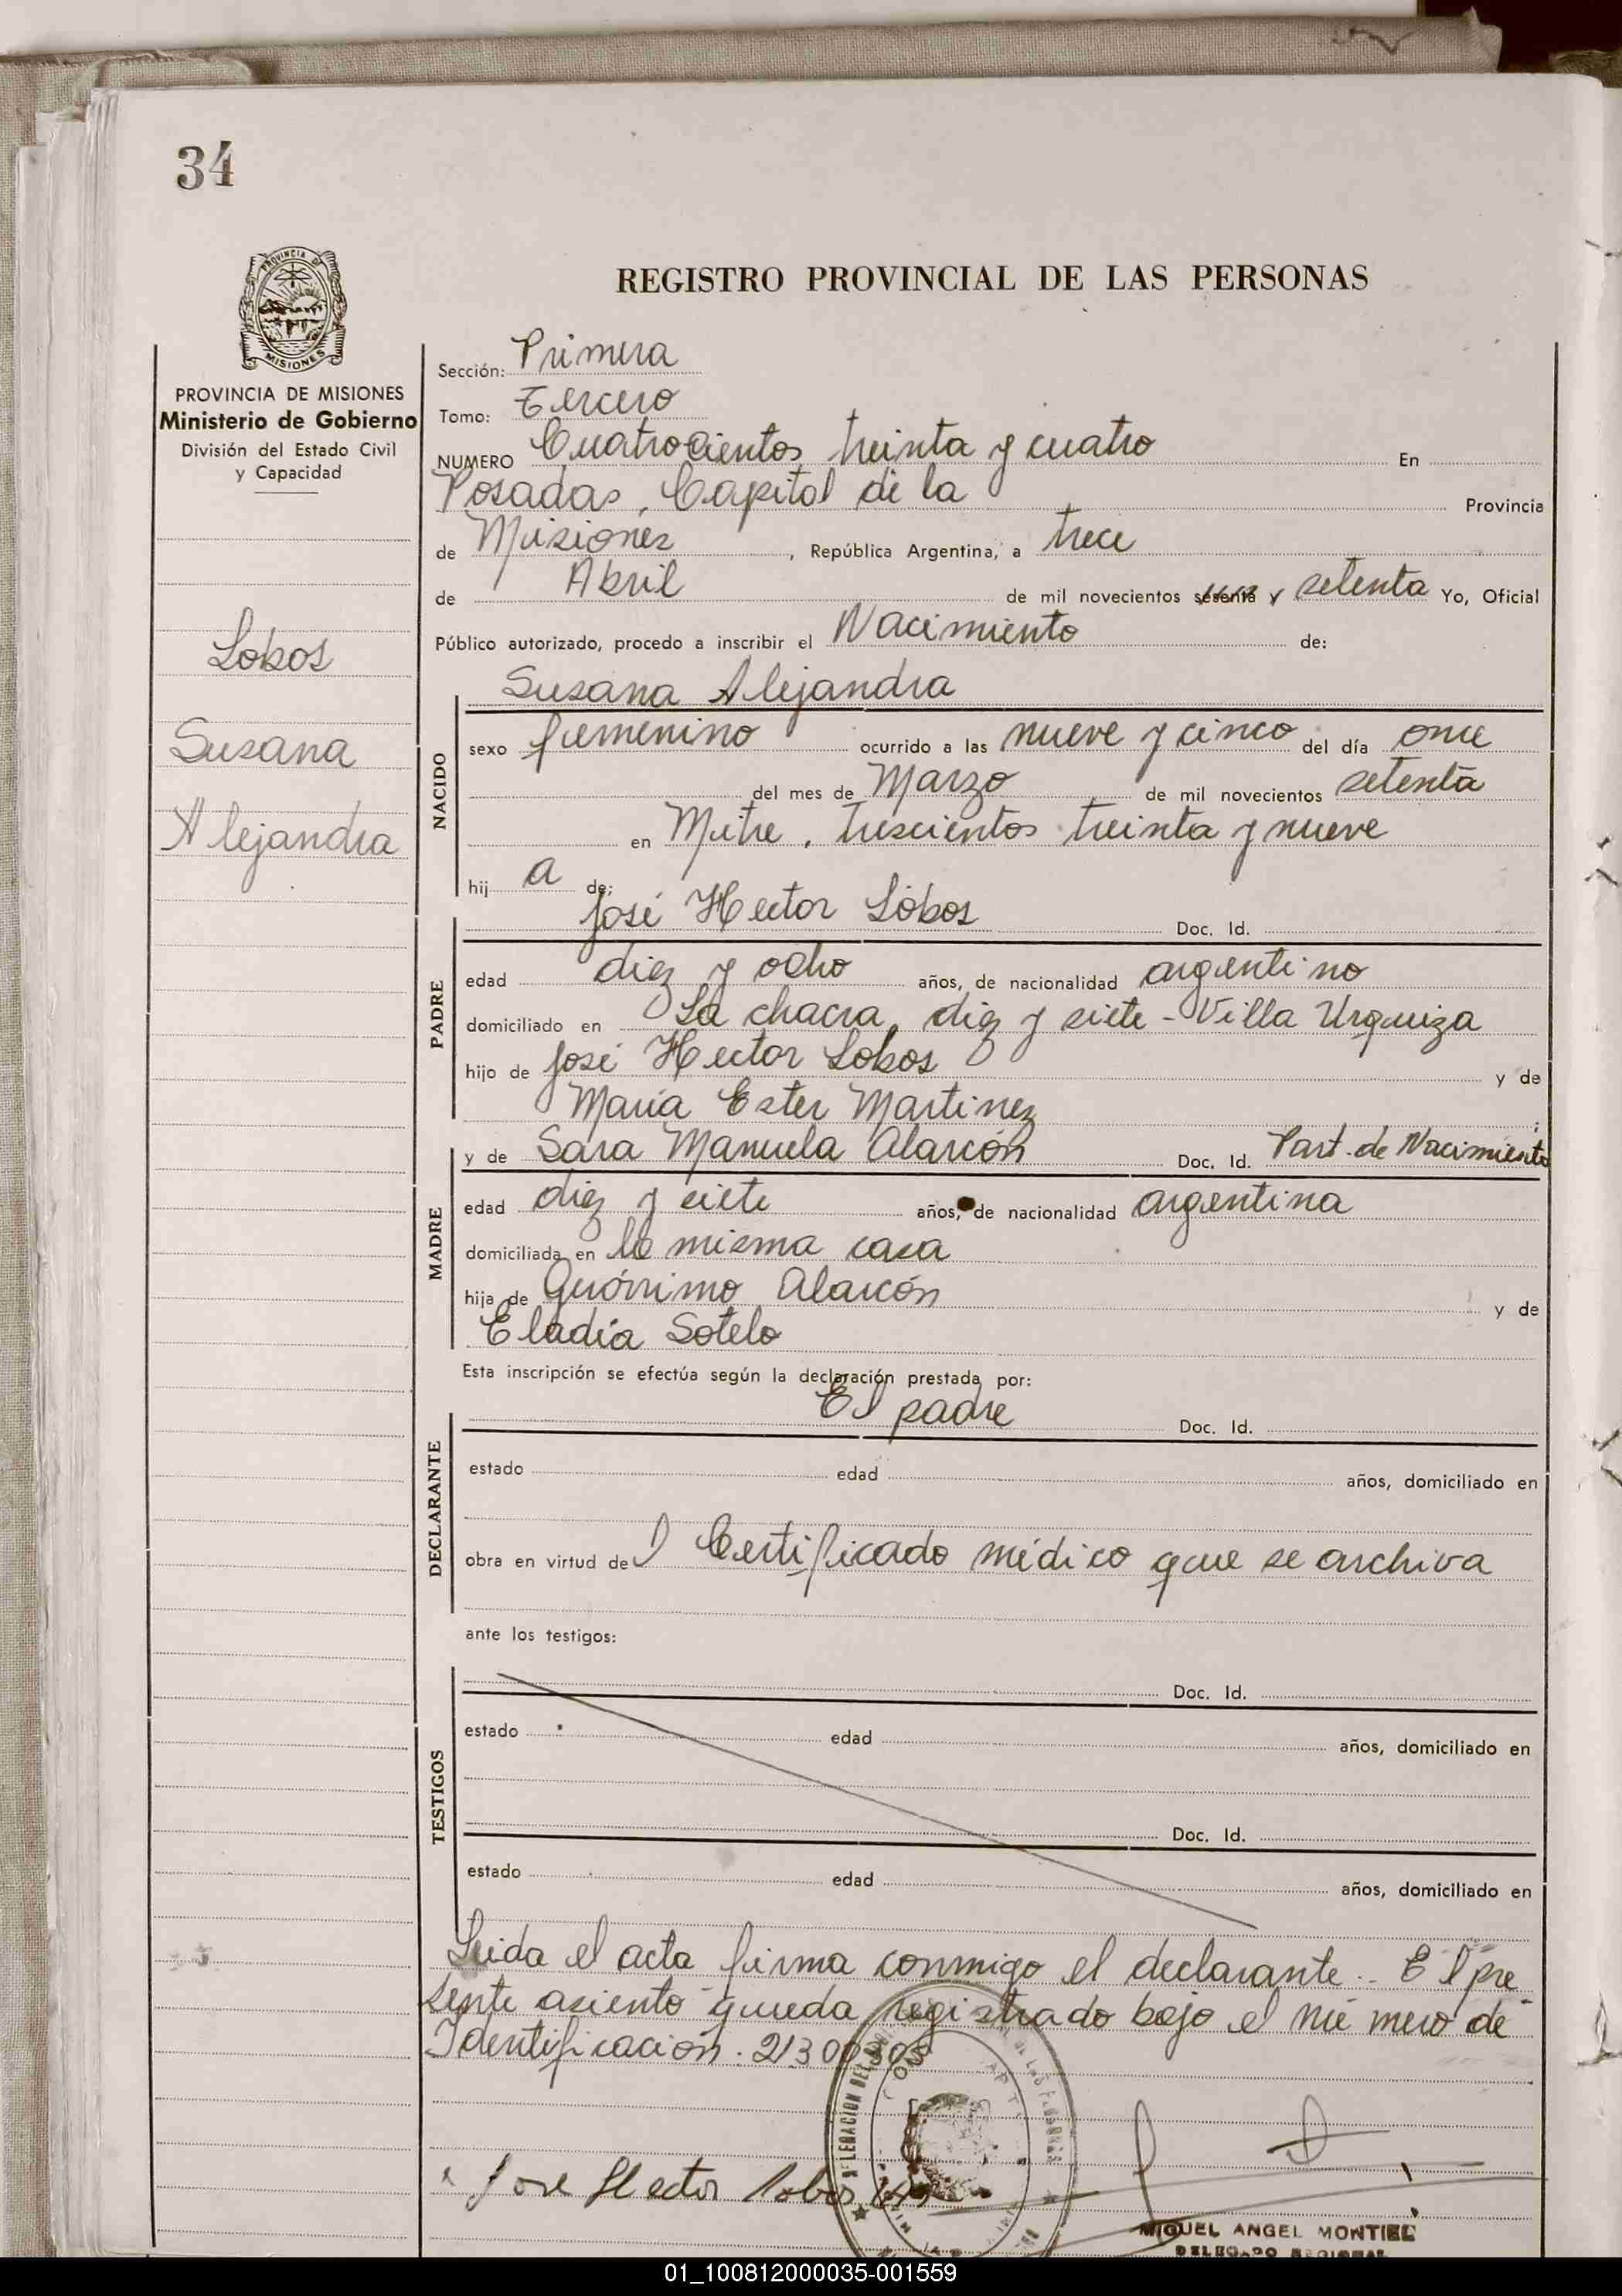 34
PROVINCIA DE
MISIONES
PROVINCIA DE MISIONES
Ministerio de Gobierno
División del Estado Civil
y Capacidad
Lobos
Susana
Alejandra
REGISTRO PROVINCIAL DE LAS PERSONAS
Sección: Primera
Tomo: Tercero
NUMERO Cuatrocientos treinta y cuatro En
Posadas, Capital de la Provincia
de Misiones, República Argentina, a trece
de Abril de mil novecientos sesenta y setenta Yo, Oficial
Público autorizado, procedo a inscribir el Nacimiento de:
Susana Alejandra
NACIDO
sexo femenino ocurrido a las nueve y cinco del día once
del mes de Marzo de mil novecientos setenta
en Mitre, trescientos treinta y nueve
hij a de:
José Hector Lobos Doc. Id.
PADRE
edad diez y ocho años, de nacionalidad argentino
domiciliado en La chacra diez y siete - Villa Urquiza
hijo de José Hector Lobos y de
María Ester Martinez;
y de Sara Manuela Alarcón Doc. Id. Part. de Nacimiento
MADRE
edad diez y siete años, de nacionalidad argentina
domiciliada en la misma casa
hija de Gerónimo Alarcón y de
Eladia Sotelo
Esta inscripción se efectúa según la declaración prestada por:
El padre Doc. Id.
DECLARANTE
estado edad años, domiciliado en
obra en virtud del Certificado médico que se archiva
ante los testigos:
Doc. Id.
TESTIGOS
estado edad años, domiciliado en
Doc. Id.
estado edad años, domiciliado en
Leida el acta firma conmigo el declarante.. El pre
sente asiento queda registrado bajo el número de
Identificación: 21300303
Jose Hector Lobos
MIGUEL ANGEL MONTIEL
DELEGADO REGIONAL
01_100812000035-001559